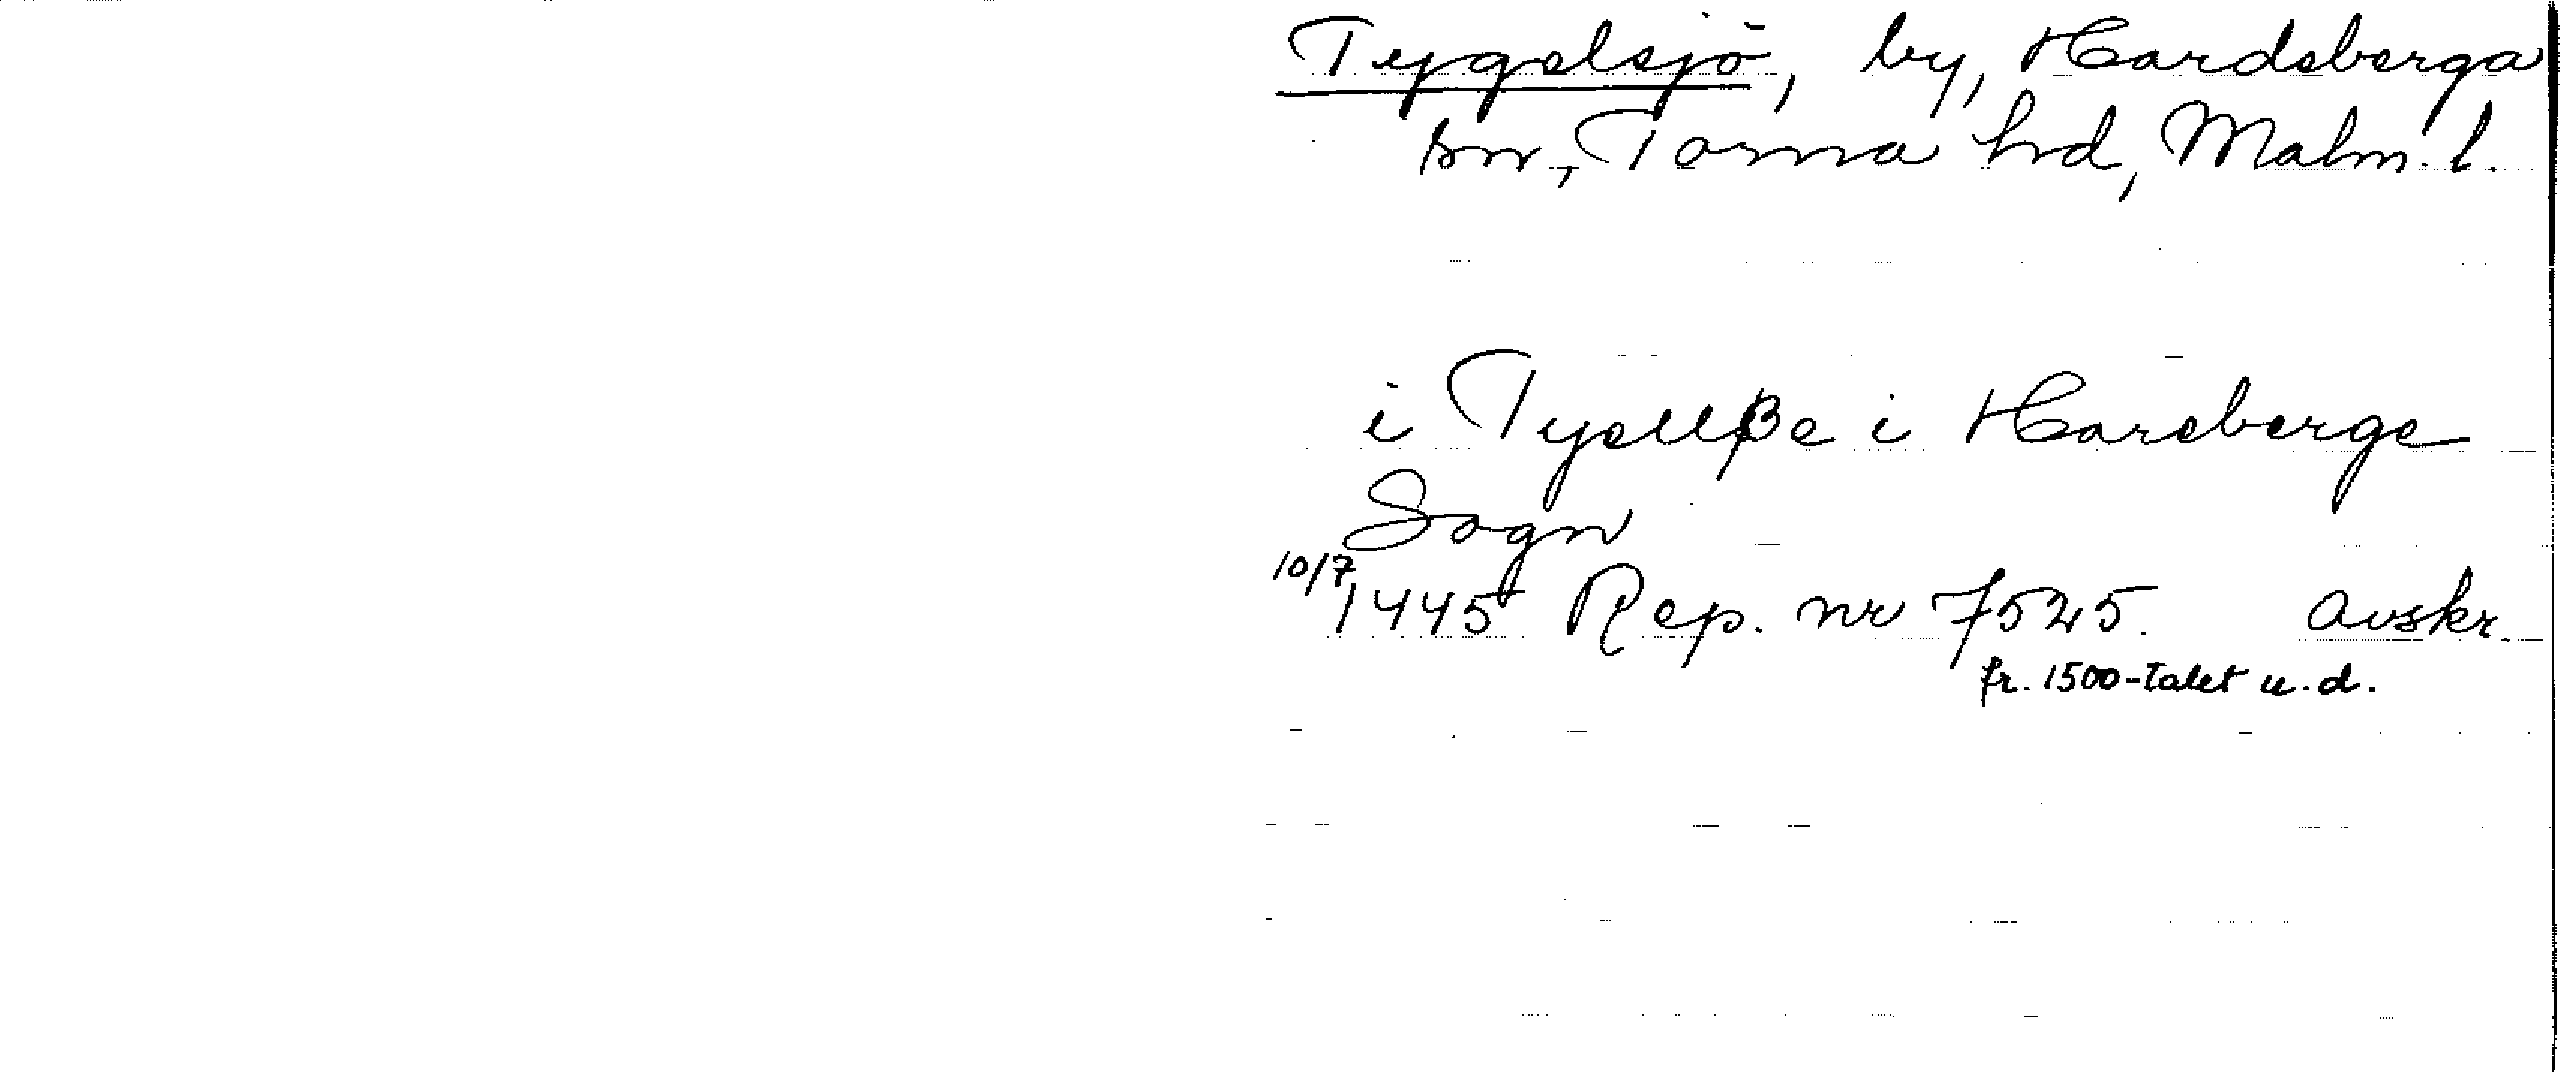 Tygelsjö, by, Hardeberga
sn, Torna hd, Malm. l.
i Tyellße i Hareberge
Sogn
10/7 1445 Rep. nr 7525. Avskr.
fr. 1500-talet u.d.